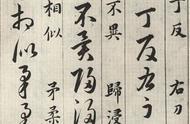 丁反 右刀
丁反右刀
不異 歸浸
不異歸浸
相似 矛柔
相似矛柔